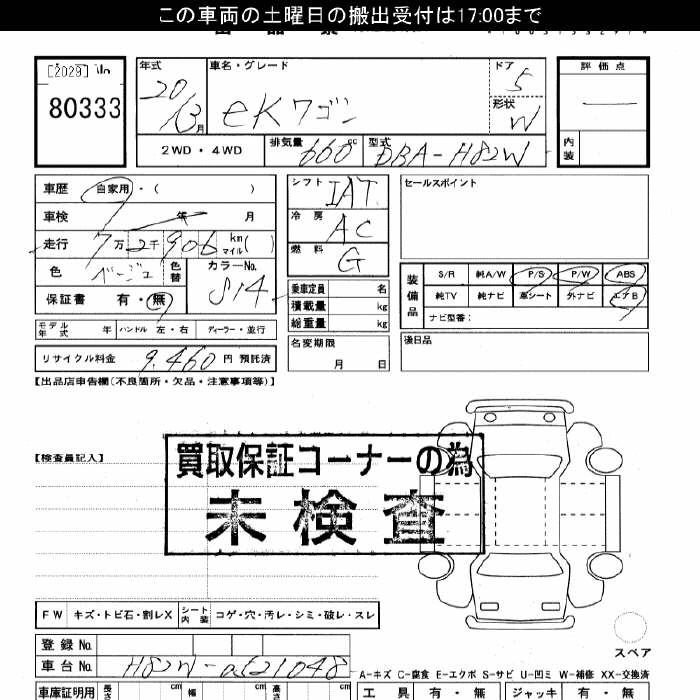 この車両の土曜日の搬出受付は17:00まで
[2029]
80333
年式 車名・グレード ドア 評価点
20 / 13 月 eKワゴン 5
形状 W
2WD・4WD 排気量 660 cc 型式 DBA-H82W 内装
車歴 自家用・( )
シフト IAT
セールスポイント
車検 年 月
冷房 AC
走行 7万2千906 km マイル( )
燃料 G
色 ベージュ 色替 カラーNo. S14
保証書 有・無
乗車定員 名
積載量 kg
総重量 kg
装備品 S/R 純A/W P/S P/W ABS
純TV 純ナビ 革シート 外ナビ エアB
ナビ型番:
モデル年式 年 ハンドル 左・右 ディーラー・並行
名変期限 月 日
後日品
リサイクル料金 9,460 円 預託済
【出品店申告欄(不良箇所・欠品・注意事項等)】
【検査員記入】
買取保証コーナーの為
未検査
FW キズ・トビ石・割レX シート内装 コゲ・穴・汚レ・シミ・破レ・スレ
スペア
登録No.
車台No. H82W-0621048
A-キズ C-腐食 E-エクボ S-サビ U-凹ミ W-補修 XX-交換済
車庫証明用 長さ cm 幅 cm 高さ cm
工具 有・無 ジャッキ 有・無